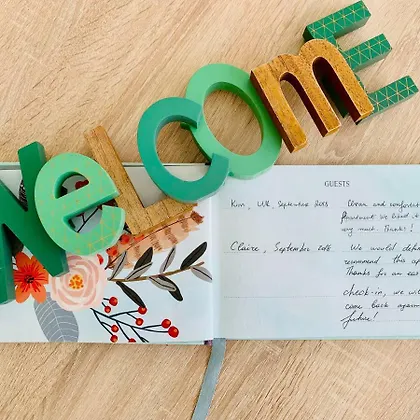 WeLcomE
GUESTS
Kim, UK, September 2018
Clean and comfortable
apartment we liked it
very much. Thanks!
Claire, September 2018
We would
recommend this
Thanks for an
check-in, we
come back again
future!